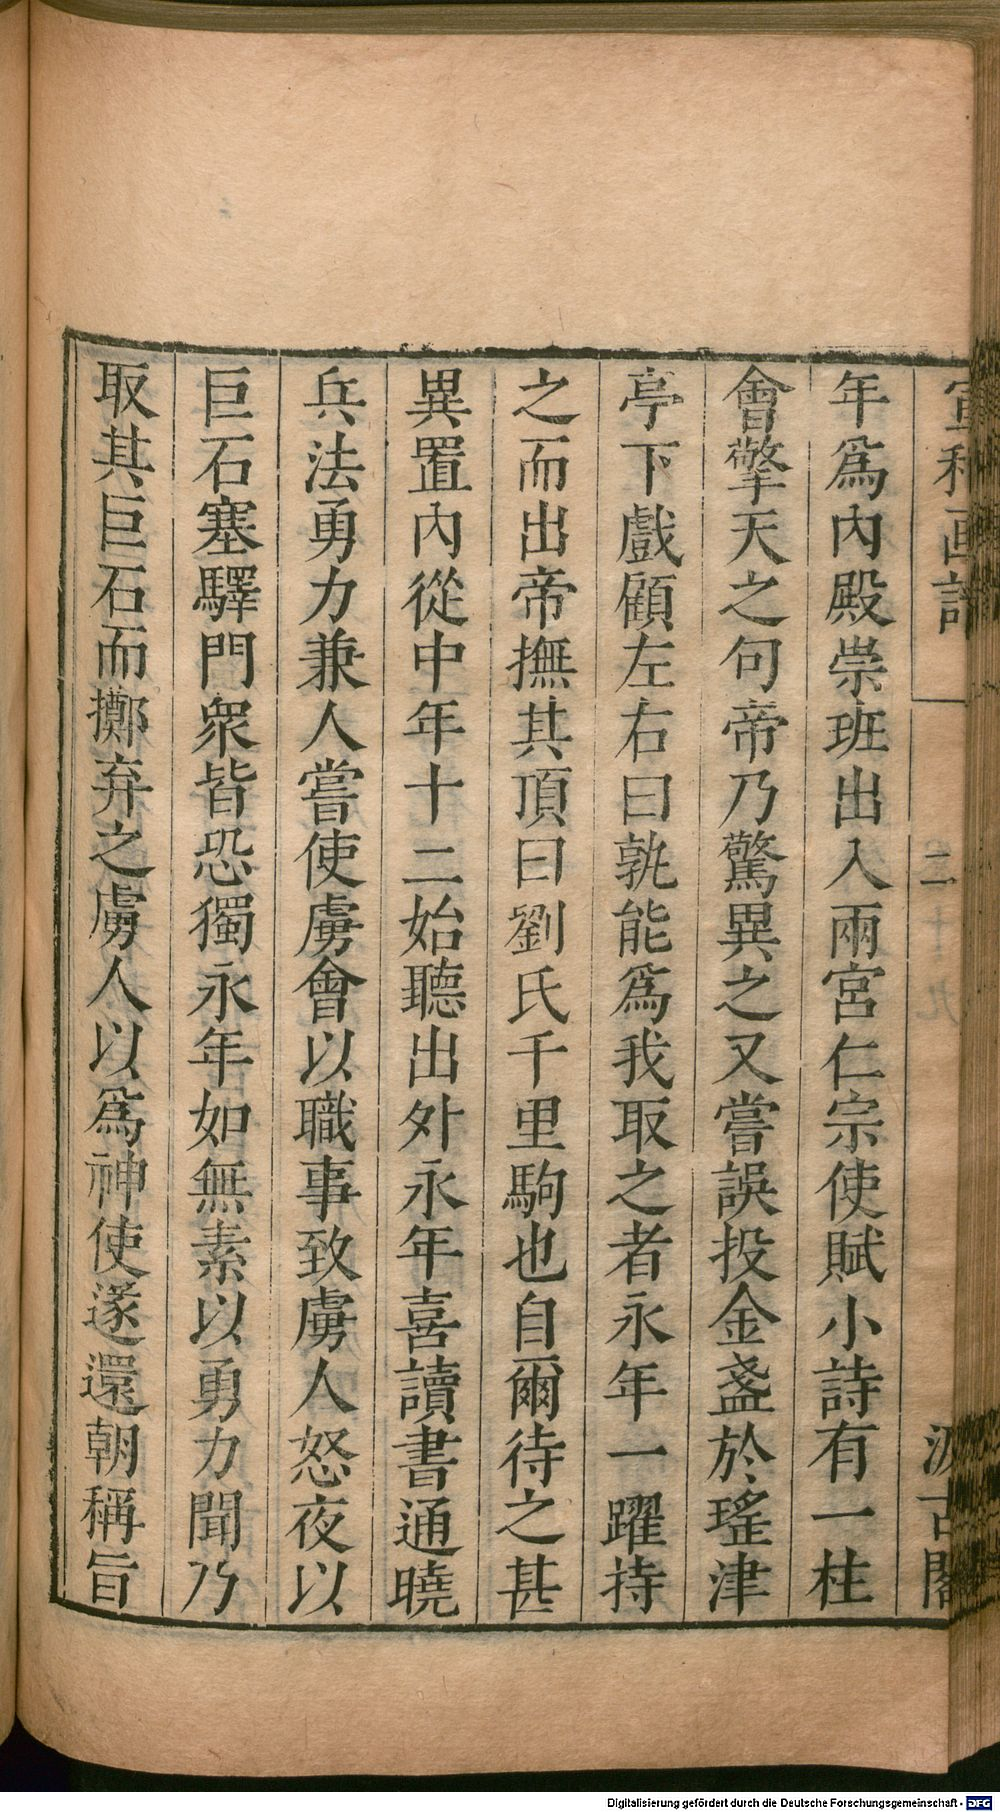 宣和画譜
二
汲古閣
年爲內殿崇班出入兩宮仁宗使賦小詩有一柱
會擎天之句帝乃驚異之又嘗誤投金盞於瑤津
亭下戲顧左右曰孰能爲我取之者永年一躍持
之而出帝撫其頂曰劉氏千里駒也自爾待之甚
異置內從中年十二始聽出外永年喜讀書通曉
兵法勇力兼人嘗使虜會以職事致虜人怒夜以
巨石塞驛門衆皆恐獨永年如無素以勇力聞乃
取其巨石而擲弃之虜人以爲神使遂還朝稱旨
Digitalisierung gefördert durch die Deutsche Forschungsgemeinschaft - DFG